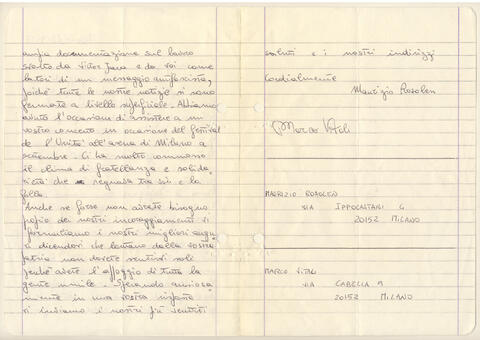 ampia documentazione sul lavoro
svolto da Victor Jara e da voi come
latori di un messaggio antifascista,
poiché tutte le nostre notizie si sono
fermate a livello superficiale. Abbiamo
avuto l'occasione di assistere a un
vostro concerto in occasione del festival
de l'Unità all'arena di Milano a
settembre. Ci ha molto commosso
il clima di fratellanza e solida
rietà che regnava tra voi e la
folla.
Anche se forse non avrete bisogno
proprio dei nostri incoraggiamenti vi
formuliamo i nostri migliori augu
ri dicendovi che lontano dalla vostra
patria non dovete sentirvi soli
perché avete l'appoggio di tutta la
gente umile. Sperando ansiosa
mente in una vostra risposta
vi inviamo i nostri più sentiti
saluti e i nostri indirizzi
Cordialmente
Maurizio Rosolen
Marco Vitali
MAURIZIO ROSOLEN
VIA IPPOCASTANI 4
20152 MILANO
MARCO VITALI
VIA CABELLA
20152 MILANO